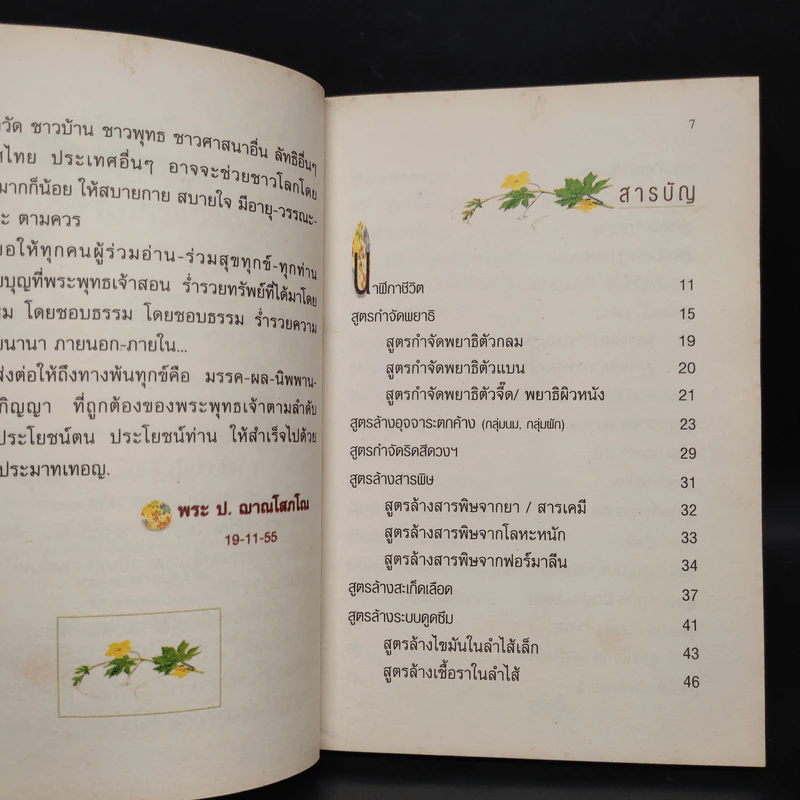 วัด ชาวบ้าน ชาวพุทธ ชาวศาสนาอื่น ลัทธิอื่นๆ
ไทย ประเทศอื่นๆ อาจจะช่วยชาวโลกโดย
มากก็น้อย ให้สบายกาย สบายใจ มีอายุ-วรรณะ-
ตามควร
ขอให้ทุกคนผู้ร่วมอ่าน-ร่วมสุขทุกข์-ทุกท่าน
บุญที่พระพุทธเจ้าสอน ร่ำรวยทรัพย์ที่ได้มาโดย
โดยชอบธรรม โดยชอบธรรม ร่ำรวยความ
นานา ภายนอก-ภายใน...
ส่งต่อให้ถึงทางพ้นทุกข์คือ มรรค-ผล-นิพพาน-
ที่ถูกต้องของพระพุทธเจ้าตามลำดับ
ประโยชน์ตน ประโยชน์ท่าน ให้สำเร็จไปด้วย
ประมาทเทอญ.
พระ ป. ฌาณโสภโณ
19-11-55
7
สารบัญ
นาฬิกาชีวิต 11
สูตรกำจัดพยาธิ 15
สูตรกำจัดพยาธิตัวกลม 19
สูตรกำจัดพยาธิตัวแบน 20
สูตรกำจัดพยาธิตัวจี๊ด/ พยาธิผิวหนัง 21
สูตรล้างอุจจาระตกค้าง (กลุ่มนม, กลุ่มผัก) 23
สูตรกำจัดริดสีดวงฯ 29
สูตรล้างสารพิษ 31
สูตรล้างสารพิษจากยา / สารเคมี 32
สูตรล้างสารพิษจากโลหะหนัก 33
สูตรล้างสารพิษจากฟอร์มาลีน 34
สูตรล้างสะเก็ดเลือด 37
สูตรล้างระบบดูดซึม 41
สูตรล้างไขมันในลำไส้เล็ก 43
สูตรล้างเชื้อราในลำไส้ 46